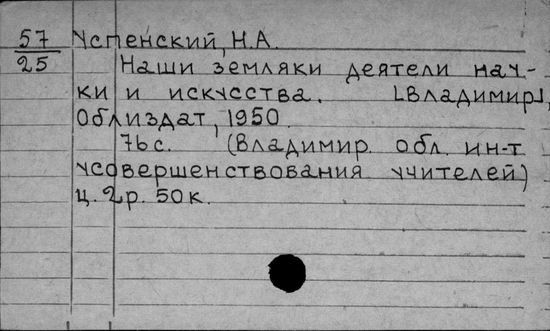 57 Успенский, Н.А.
25 Наши земляки деятели нау-
ки и искусства. [Владимир],
Облиздат, 1950.
76 с. (Владимир. обл. ин-т
усовершенствования учителей)
ц. 2 р. 50 к.